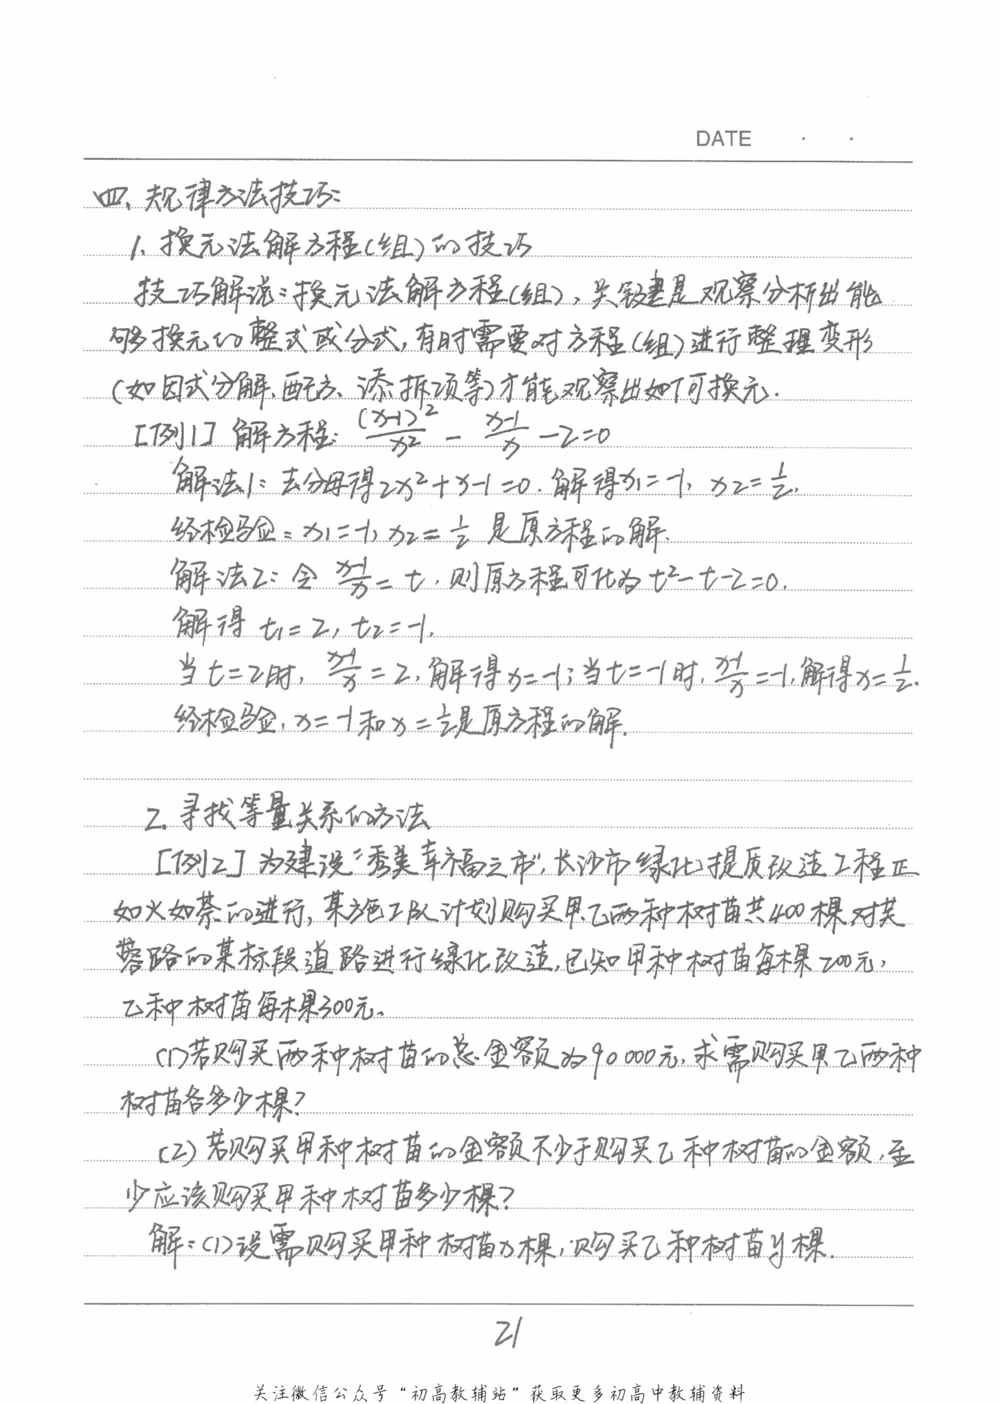 DATE · ·
四、规律方法技巧:
1、换元法解方程(组)的技巧
技巧解说:换元法解方程(组),关键是观察分析出能
够换元的整式或分式,有时需要对方程(组)进行整理变形
(如因式分解、配方、添拆项等)才能观察出如何换元.
[例1] 解方程: (x-1)²/x² - (x-1)/x - 2=0
解法1: 去分母得2x²+x-1=0. 解得x₁=-1, x₂=1/2.
经检验: x₁=-1, x₂=1/2 是原方程的解.
解法2: 令 (x-1)/x = t, 则原方程可化为 t²-t-2=0.
解得 t₁=2, t₂=-1.
当t=2时, (x-1)/x =2, 解得x=-1; 当t=-1时, (x-1)/x =-1, 解得x=1/2.
经检验, x=-1和x=1/2是原方程的解.
2. 寻找等量关系的方法
[例2] 为建设“秀美幸福之市”,长沙市绿化提质改造工程正
如火如荼的进行,某施工队计划购买甲乙两种树苗共400棵对芙
蓉路的某标段道路进行绿化改造,已知甲种树苗每棵200元,
乙种树苗每棵300元.
(1)若购买两种树苗的总金额为90000元,求需购买甲乙两种
树苗各多少棵?
(2)若购买甲种树苗的金额不少于购买乙种树苗的金额,至
少应该购买甲种树苗多少棵?
解:(1)设需购买甲种树苗x棵,购买乙种树苗y棵.
21
关注微信公众号“初高教辅站”获取更多初高中教辅资料